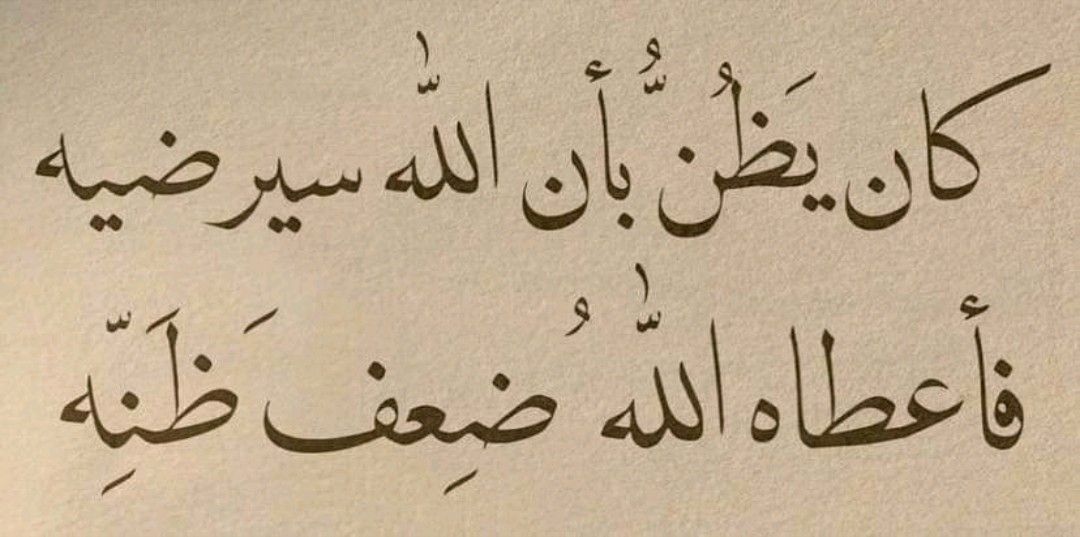 كان يَظُنُّ بأن اللّٰه سيرضيه
فأعطاه اللّٰهُ ضِعفَ ظَنِّه